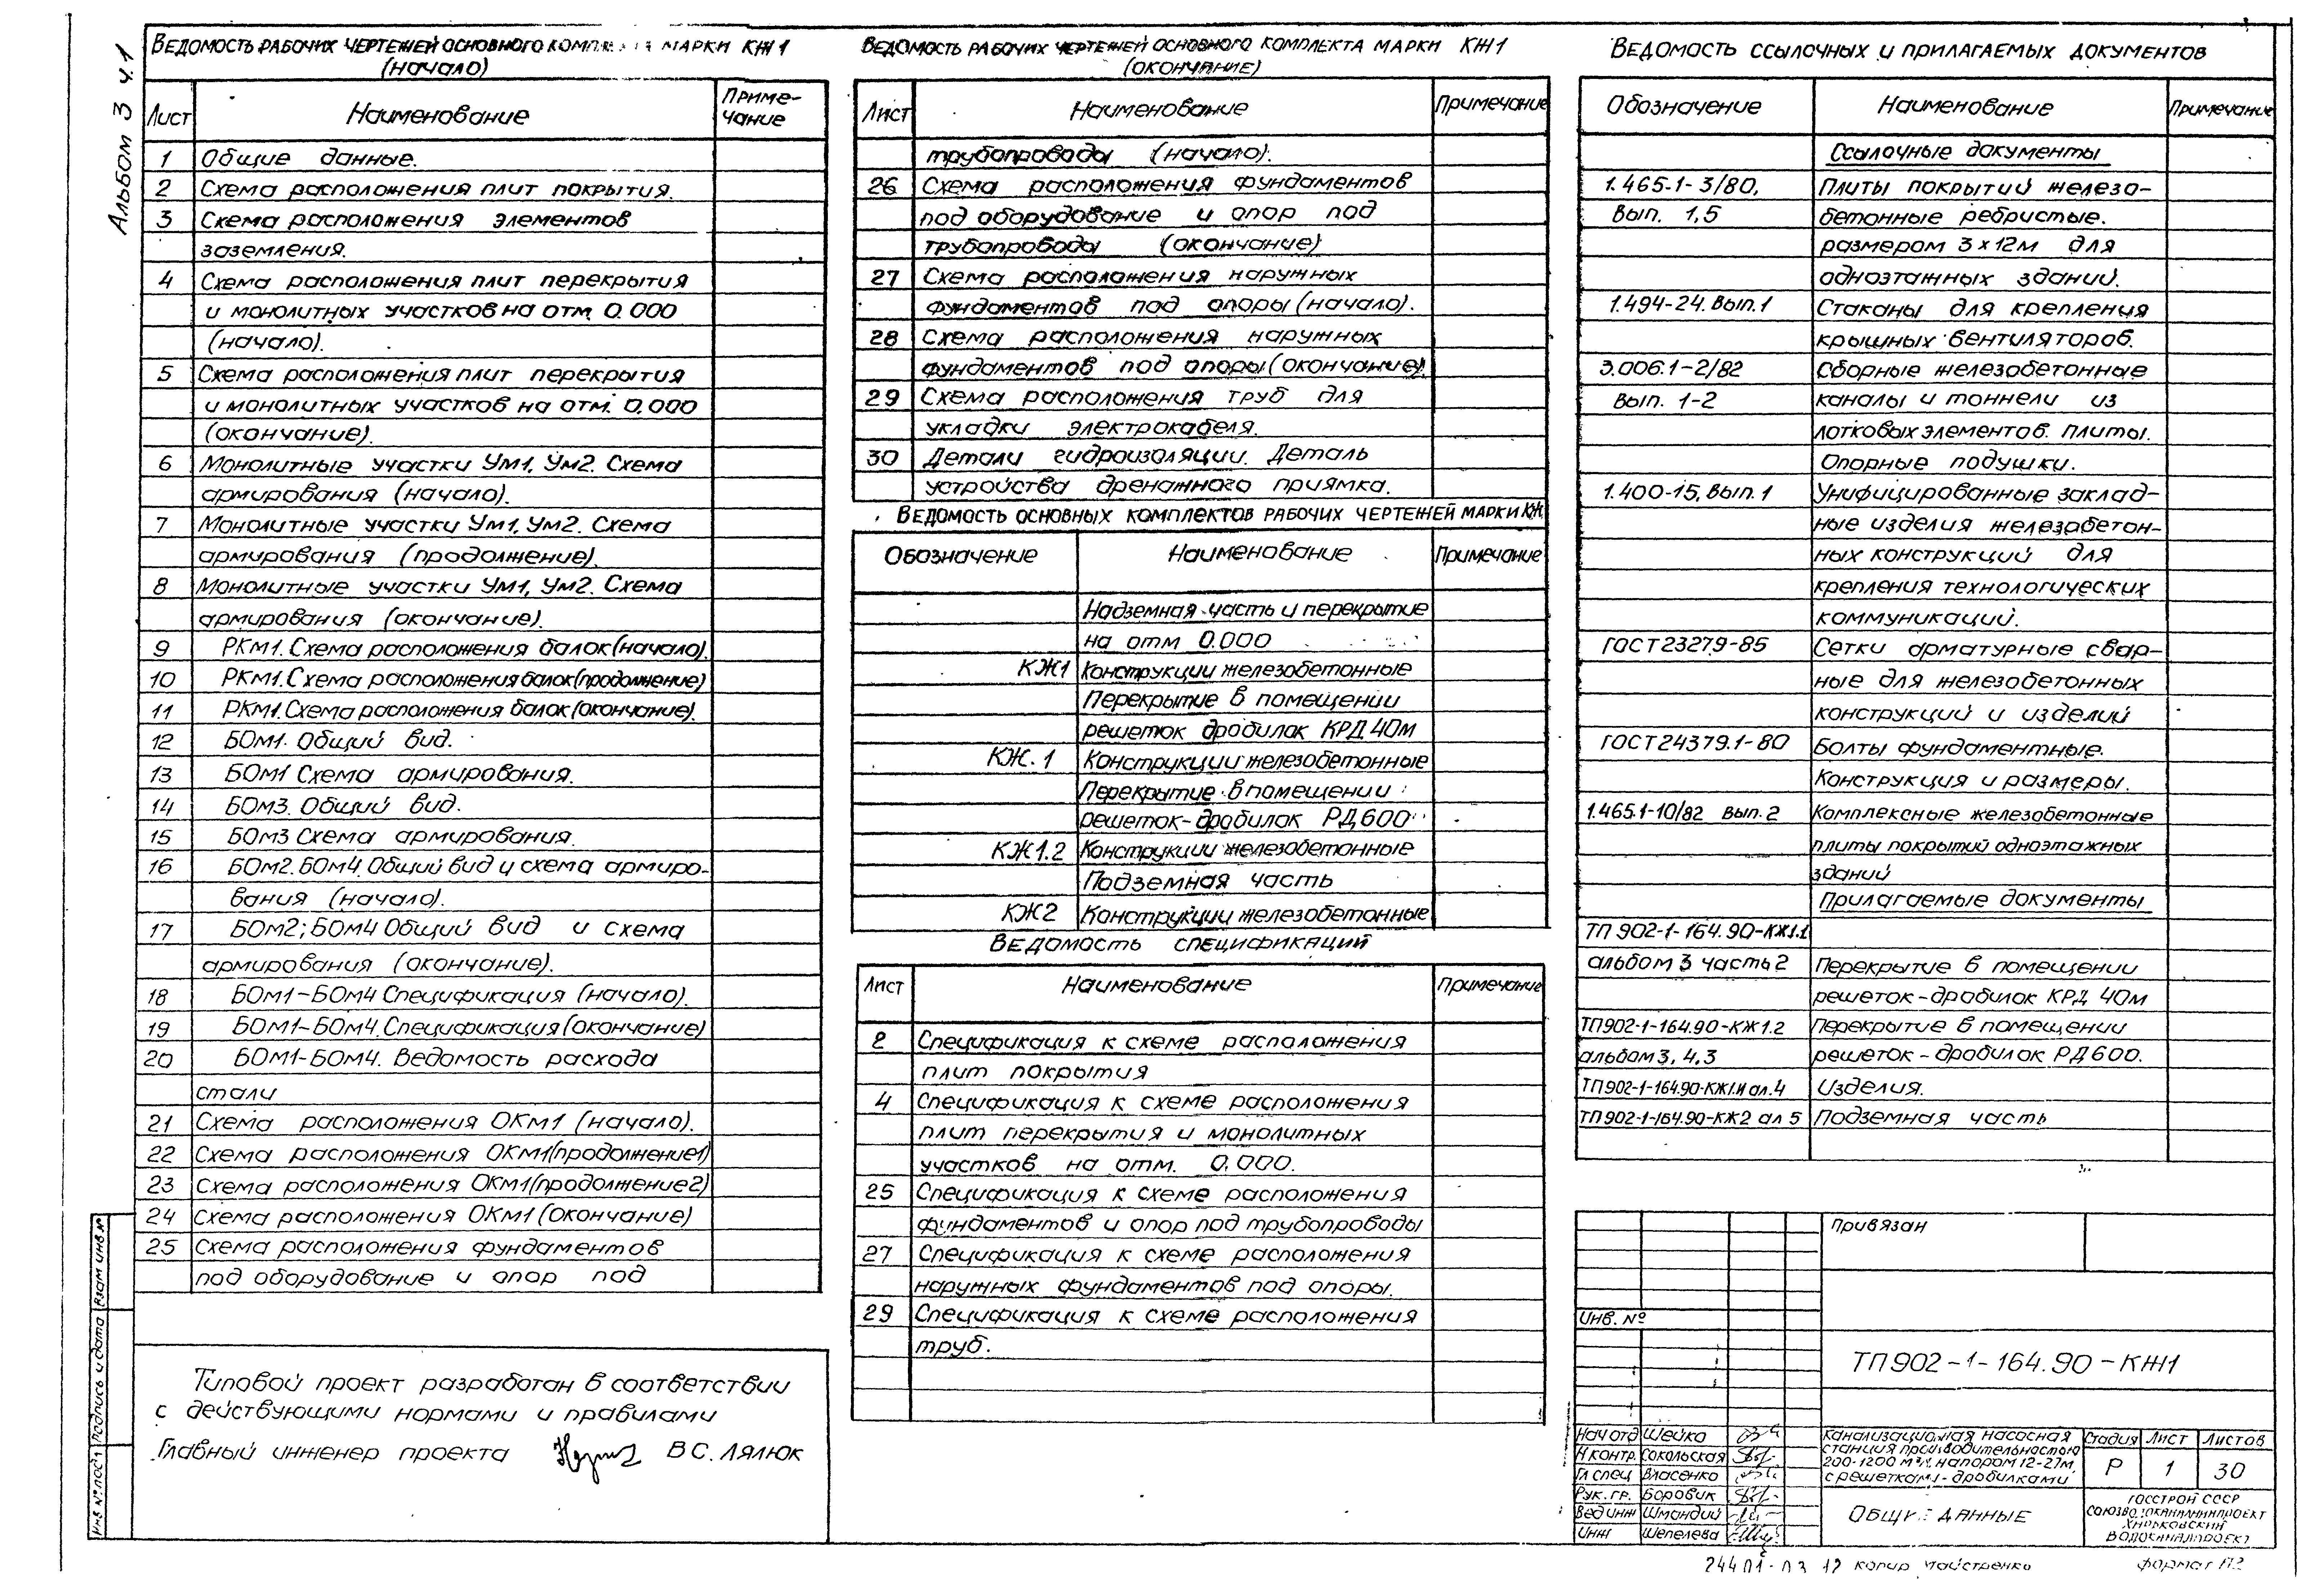 Альбом 3 ч.1
Ведомость рабочих чертежей основного комплекта марки КЖ1
(начало)
Лист Наименование Приме-
чание
1 Общие данные.
2 Схема расположения плит покрытия.
3 Схема расположения элементов
заземления.
4 Схема расположения плит перекрытия
и монолитных участков на отм. 0.000
(начало).
5 Схема расположения плит перекрытия
и монолитных участков на отм. 0.000
(окончание).
6 Монолитные участки Ум1, Ум2. Схема
армирования (начало).
7 Монолитные участки Ум1, Ум2. Схема
армирования (продолжение).
8 Монолитные участки Ум1, Ум2. Схема
армирования (окончание).
9 РКм1. Схема расположения балок (начало).
10 РКм1. Схема расположения балок (продолжение)
11 РКм1. Схема расположения балок (окончание).
12 БОм1. Общий вид.
13 БОм1 Схема армирования.
14 БОм3. Общий вид.
15 БОм3 Схема армирования.
16 БОм2. БОм4. Общий вид и схема армиро-
вания (начало).
17 БОм2; БОм4 Общий вид и схема
армирования (окончание).
18 БОм1-БОм4 Спецификация (начало).
19 БОм1-БОм4. Спецификация (окончание)
20 БОм1-БОм4. Ведомость расхода
стали
21 Схема расположения ОКм1 (начало).
22 Схема расположения ОКм1 (продолжение1)
23 Схема расположения ОКм1 (продолжение2)
24 Схема расположения ОКм1 (окончание)
25 Схема расположения фундаментов
под оборудование и опор под
Типовой проект разработан в соответствии
с действующими нормами и правилами
Главный инженер проекта В С. Лялюк
Инв № посл Подпись и дата Взам инв №
Ведомость рабочих чертежей основного комплекта марки КЖ1
(окончание)
Лист Наименование Примечание
трубопроводы (начало).
26 Схема расположения фундаментов
под оборудование и опор под
трубопроводы (окончание)
27 Схема расположения наружных
фундаментов под опоры (начало).
28 Схема расположения наружных
фундаментов под опоры (окончание).
29 Схема расположения труб для
укладки электрокабеля.
30 Детали гидроизоляции. Деталь
устройства дренажного приямка.
Ведомость основных комплектов рабочих чертежей марки КЖ
Обозначение Наименование Примечание
Надземная часть и перекрытие
на отм 0.000
КЖ1 Конструкции железобетонные
Перекрытие в помещении
решеток дробилок КРД 40м
КЖ.1 Конструкции железобетонные
Перекрытие в помещении
решеток-дробилок РД600
КЖ1.2 Конструкции железобетонные
Подземная часть
КЖ2 Конструкции железобетонные
Ведомость спецификаций
Лист Наименование Примечание
2 Спецификация к схеме расположения
плит покрытия
4 Спецификация к схеме расположения
плит перекрытия и монолитных
участков на отм. 0.000.
25 Спецификация к схеме расположения
фундаментов и опор под трубопроводы
27 Спецификация к схеме расположения
наружных фундаментов под опоры.
29 Спецификация к схеме расположения
труб.
Ведомость ссылочных и прилагаемых документов
Обозначение Наименование Примечание
Ссылочные документы
1.465.1-3/80, Плиты покрытий железо-
вып. 1,5 бетонные ребристые.
размером 3х12м для
одноэтажных зданий.
1.494-24. Вып.1 Стаканы для крепления
крышных вентиляторов.
3.006.1-2/82 Сборные железобетонные
Вып. 1-2 каналы и тоннели из
лотковых элементов. Плиты.
Опорные подушки.
1.400-15, Вып.1 Унифицированные заклад-
ные изделия железобетон-
ных конструкций для
крепления технологических
коммуникаций.
ГОСТ 23279-85 Сетки арматурные свар-
ные для железобетонных
конструкций и изделий
ГОСТ 24379.1-80 Болты фундаментные.
Конструкция и размеры.
1.465.1-10/82 Вып. 2 Комплексные железобетонные
плиты покрытий одноэтажных
зданий
Прилагаемые документы
ТП 902-1-164.90-КЖ1.1
альбом 3 часть 2 Перекрытие в помещении
решеток-дробилок КРД 40м
ТП902-1-164.90-КЖ1.2 Перекрытие в помещении
альбом 3, ч, 3 решеток-дробилок РД600.
ТП902-1-164.90-КЖ1.И ал.4 Изделия.
ТП902-1-164.90-КЖ2 ал 5 Подземная часть
Привязан
Инв. №
ТП902-1-164.90-КЖ1
Нач отд Шейко
Н контр. Сокольская
Гл спец Власенко
Рук. гр. Боровик
Вед инж Шмандий
Инж Шепелева
Канализационная насосная
станция производительностью
200-1200 м³/ч, напором 12-27м,
с решетками-дробилками
Стадия Лист Листов
Р 1 30
Общие данные
Госстрой СССР
Союзводоканалниипроект
Харьковский
Водоканалпроект
24401-03 12 копир Майстренко формат А2